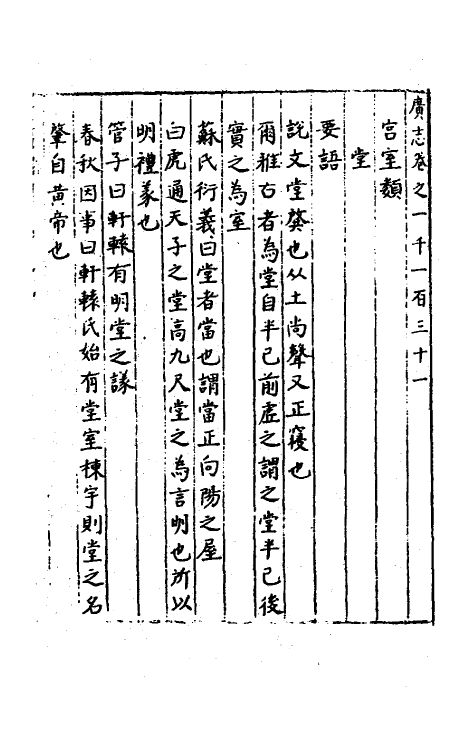 廣志卷之一千一百三十一
宫室類
堂
要語
説文堂㙶也从土尚聲又正寢也
爾雅古者為堂自半已前虛之謂之堂半已後
實之為室
蘇氏衍義曰堂者當也謂當正向陽之屋
白虎通天子之堂高九尺堂之為言明也所以
明禮義也
管子曰軒轅有明堂之議
春秋因事曰軒轅氏始有堂室棟宇則堂之名
肇自黄帝也